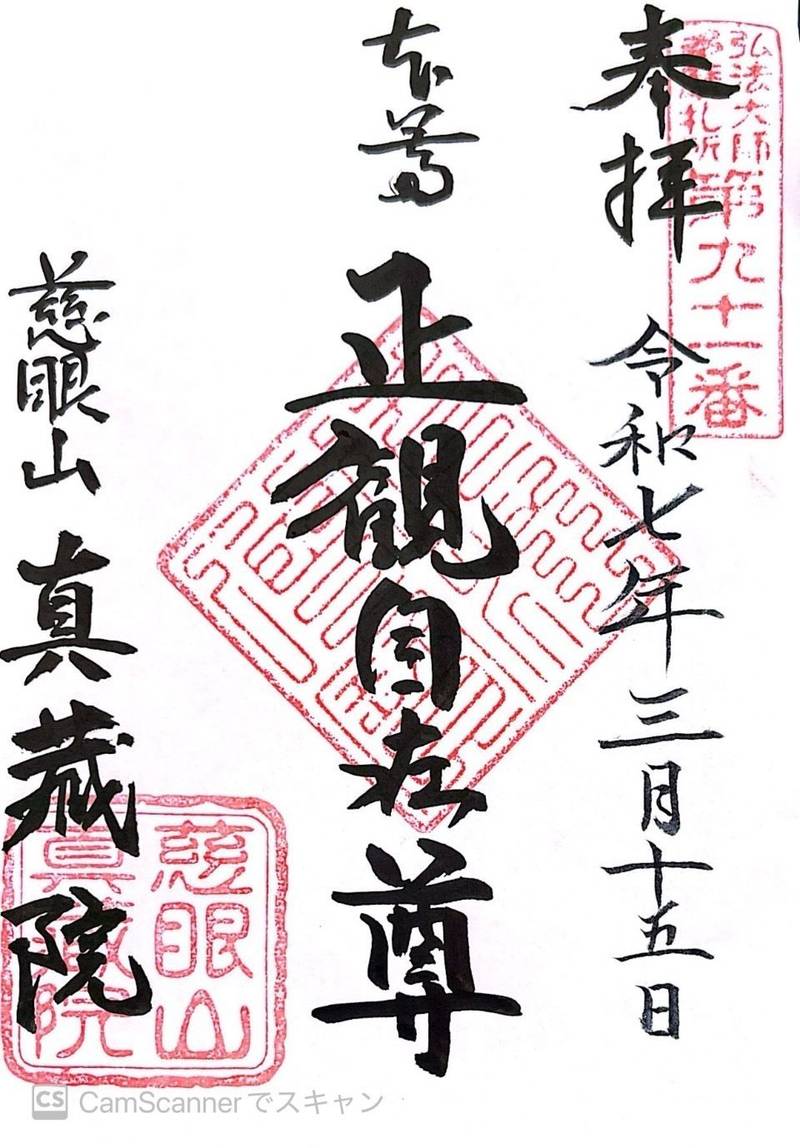 奉拝
弘法大師
札所
第九十一番
令和七年三月十五日
本尊
正観自在尊
慈眼山
真蔵院
慈眼山
真蔵院
CS CamScannerでスキャン